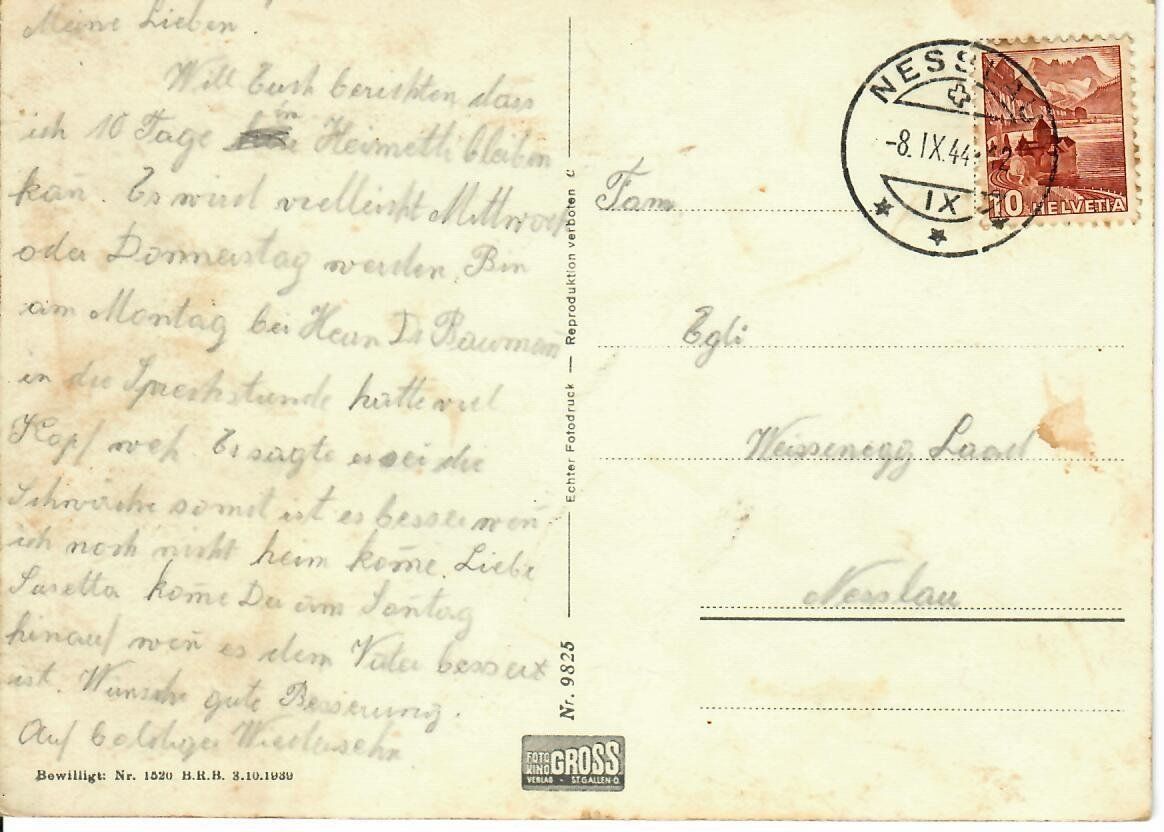 Meine Lieben!
Will Euch berichten dass
ich 10 Tage in Heimetli bleiben
kan̄. Es wird vielleicht Mittwoch
oder Donnerstag werden. Bin
am Montag bei Herrn Dr Baumann
in die Sprechstunde hatte viel
Kopf weh. Er sagte es sei die
Schwäche somit ist es besser wen̄
ich noch nicht heim kom̄e. Liebe
Susetta kom̄e Du am Son̄tag
hinauf wen̄ es dem Vater besser
ist. Wünsche gute Besserung.
Auf baldiges Wiedersehn
Bewilligt: Nr. 1520 B.R.B. 3.10.1939
Nr. 9825 — Echter Fotodruck — Reproduktion verboten C
FOTO KINO GROSS
VERLAG - ST.GALLEN-O.
NESSLAU
-8.IX.44
IX
10 HELVETIA
Fam.
Egli
Weissenegg Laad
Nesslau